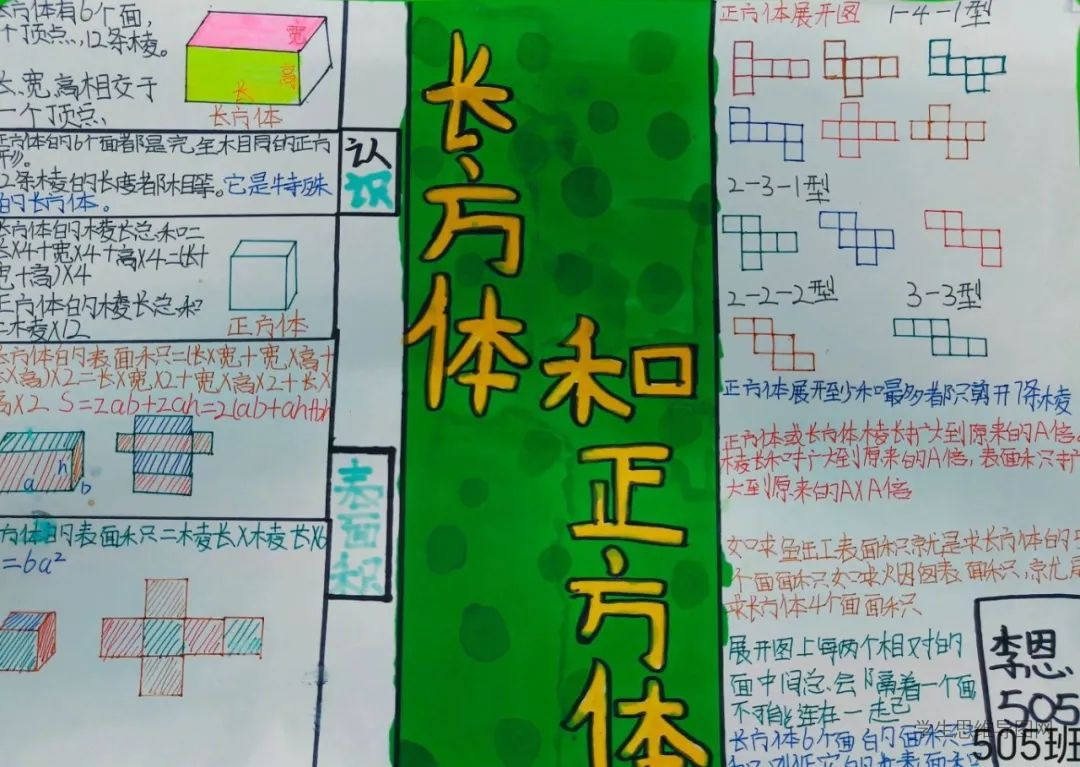 长方体有6个面,
个顶点,12条棱。
长、宽、高相交于
一个顶点、
宽
高
长
长方体
正方体的6个面都是完全相同的正方
形。
12条棱的长度都相等。它是特殊
的长方体。
认
识
长方体的棱长总和=
长×4+宽×4+高×4=(长+
宽+高)×4
正方体的棱长总和
=棱×12
正方体
长方体的表面积=(长×宽+宽×高+
长×高)×2=长×宽×2+宽×高×2+长×
高×2 S=2ab+2ah=2(ab+ah+bh
h
a
b
表
面
积
方体的表面积=棱长×棱长×6
=6a²
长方体
和正方体
正方体展开图 1-4-1型
2-3-1型
2-2-2型 3-3型
正方体展开至少和最多都只剪开7条棱
正方体或长方体棱长扩大到原来的A倍。
棱长和扩大到原来的A倍,表面积扩
大到原来的A×A倍
如求鱼缸表面积就是求长方体的5
个面面积,如求烟囱表面积,就是
求长方体4个面面积
展开图上每两个相对的
面中间总会隔着一个面
不可能连在一起
长方体6个面的面积
李恩
505
学生思维导图网
505班